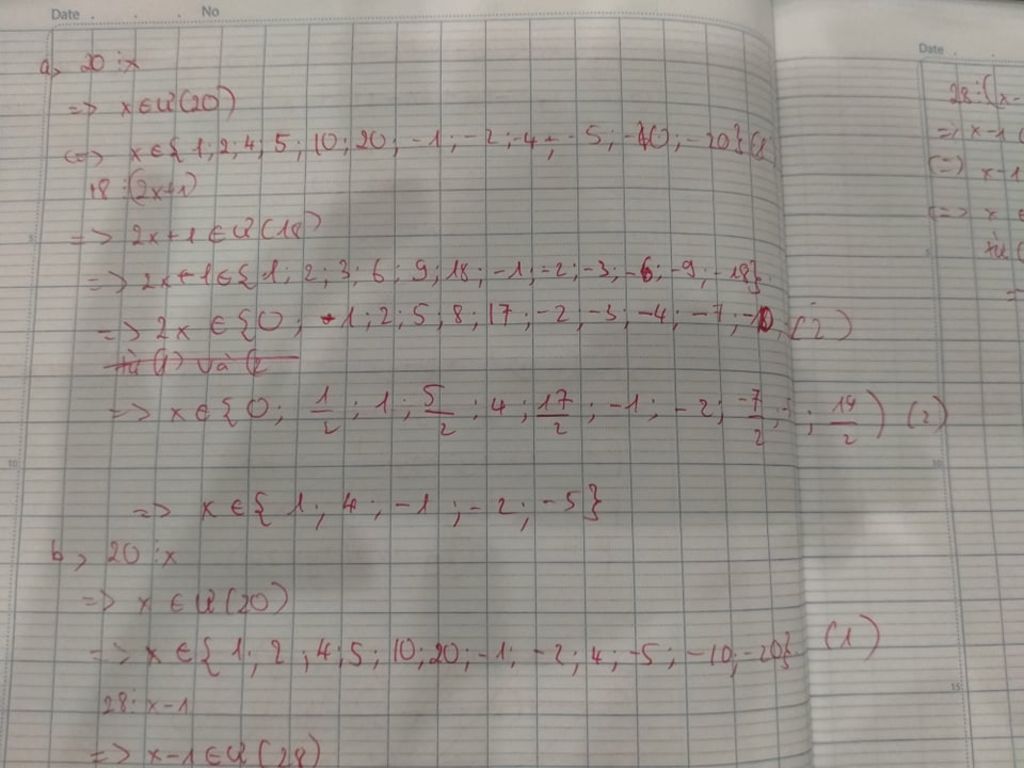 Date No
a, 20 ⋮ x
=> x ∈ Ư(20)
<=> x ∈ { 1; 2; 4; 5; 10; 20; -1; -2; -4; -5; -10; -20} (1
18 ⋮ (2x+1)
=> 2x+1 ∈ Ư(18)
=> 2x+1 ∈ { 1; 2; 3; 6; 9; 18; -1; -2; -3; -6; -9; -18}
=> 2x ∈ {0; 1; 2; 5; 8; 17; -2; -3; -4; -7; -10 (2)
từ (1) và (2
=> x ∈ {0; 1/2; 1; 5/2; 4; 17/2; -1; -2; -7/2; ; 19/2) (2)
=> x ∈ { 1; 4; -1; -2; -5}
b, 20 ⋮ x
=> x ∈ Ư(20)
=> x ∈ { 1; 2; 4; 5; 10; 20; -1; -2; 4; -5; -10; -20} (1)
28 ⋮ x-1
=> x-1 ∈ Ư(28)
Date
28 ⋮ (x-
=> x-1 (
(=) x-1
(=> x ∈
từ (
=